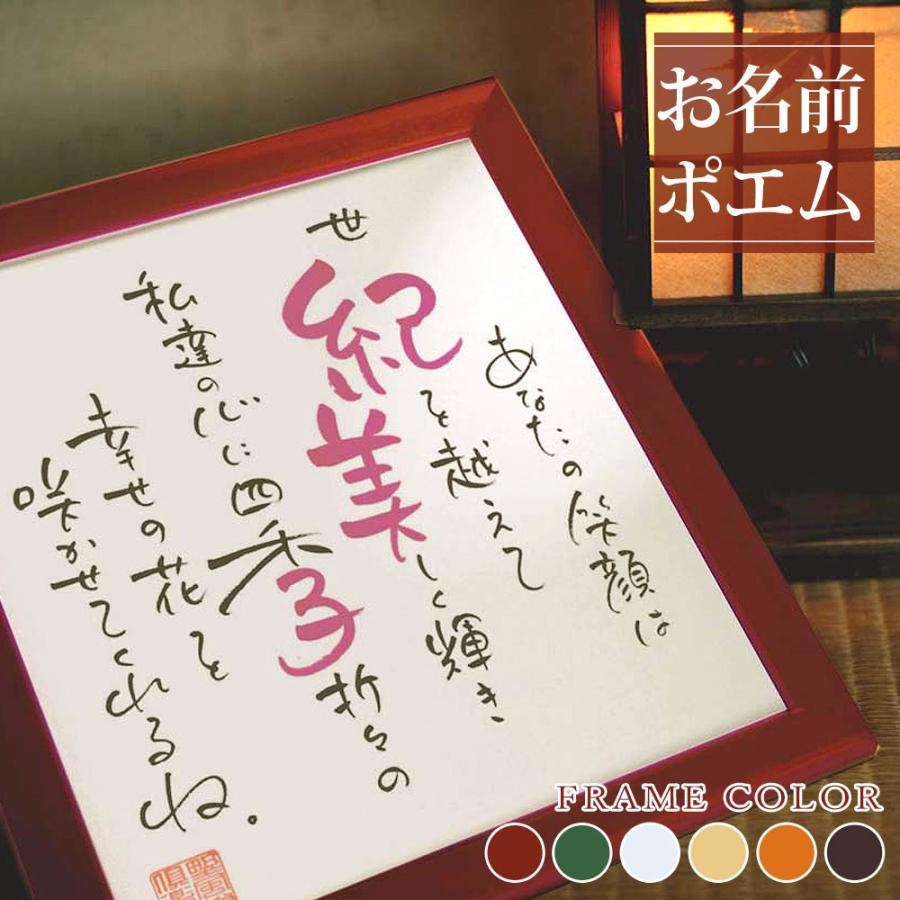 お名前
ポエム
あなたの笑顔は
世紀を越えて
美しく輝き
私達の心に四季折々の
幸せの花を
咲かせてくれるね。
FRAME COLOR